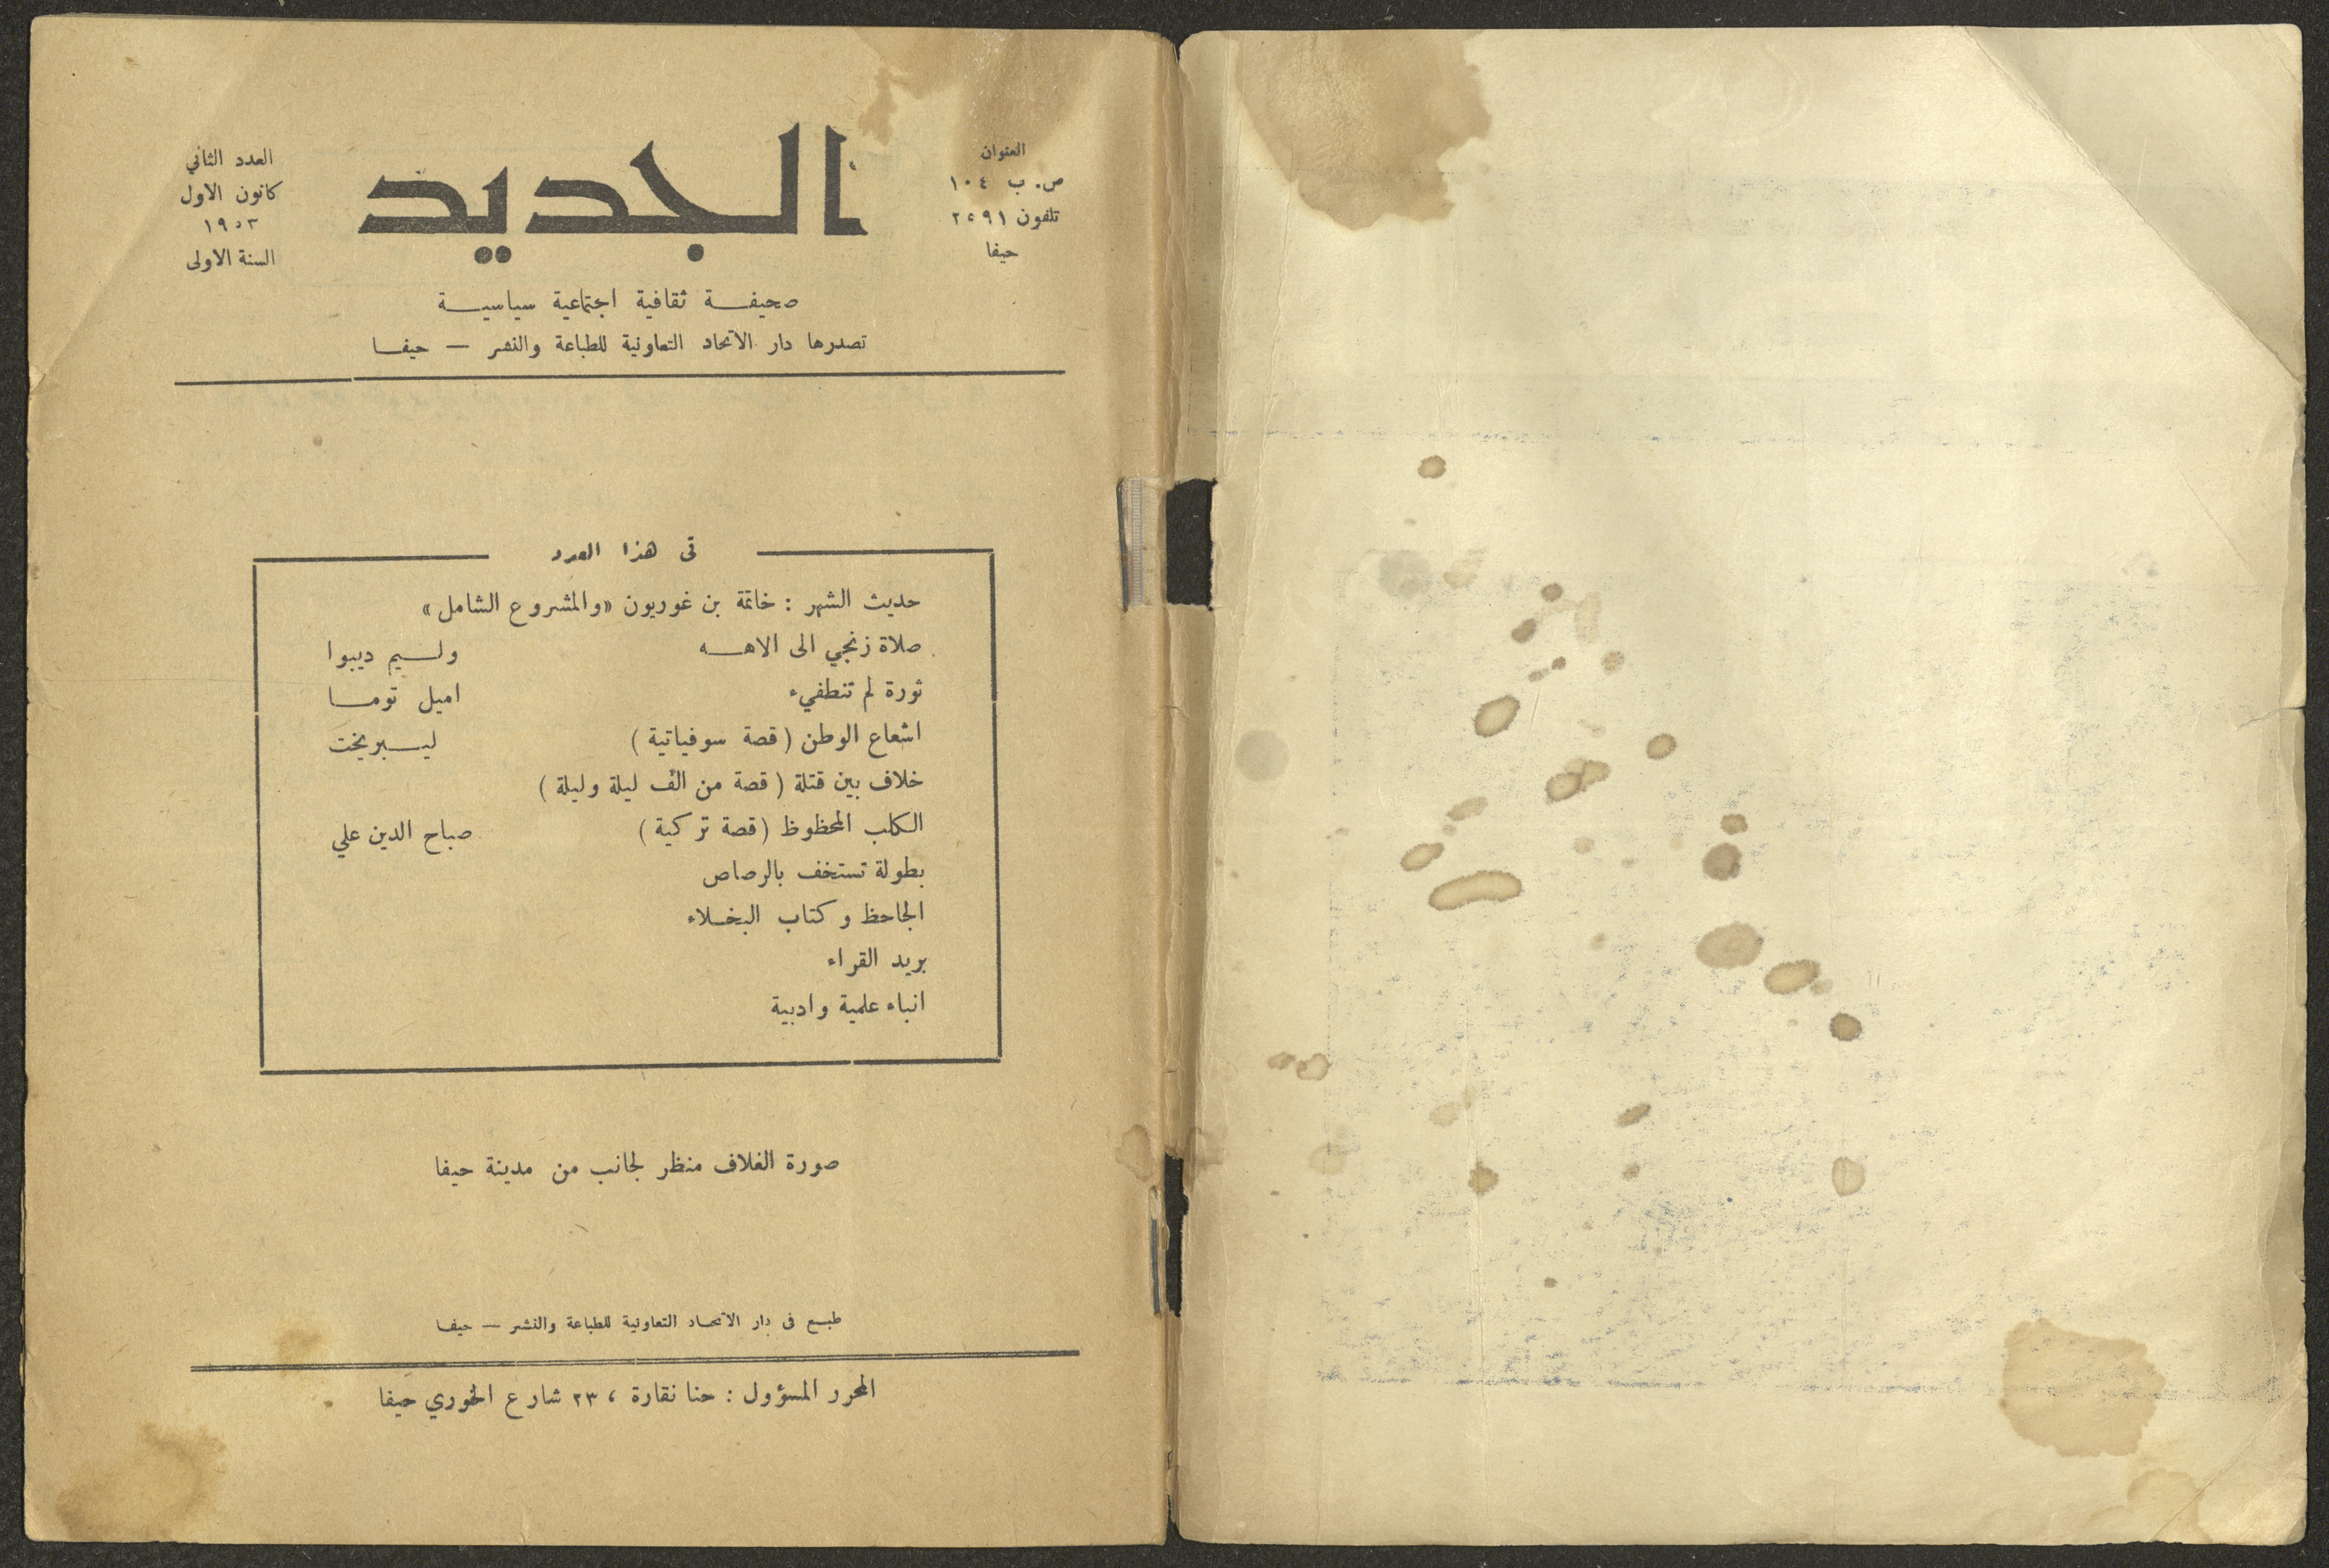 العنوان
ص. ب ١٠٤
تلفون ٢٥٩١
حيفا
الجديد
العدد الثاني
كانون الاول
١٩٥٣
السنة الاولى
صحيفة ثقافية اجتماعية سياسية
تصدرها دار الاتحاد التعاونية للطباعة والنشر — حيفا
في هذا العدد
حديث الشهر : خاتمة بن غوريون «والمشروع الشامل»
صلاة زنجي الى الاهه وليم ديبوا
ثورة لم تنطفيء اميل توما
اشعاع الوطن ( قصة سوفياتية ) ليبريخت
خلاف بين قتلة ( قصة من الف ليلة وليلة )
الكلب المحظوظ ( قصة تركية ) صباح الدين علي
بطولة تستخف بالرصاص
الجاحظ وكتاب البخلاء
بريد القراء
انباء علمية وادبية
صورة الغلاف منظر لجانب من مدينة حيفا
طبع في دار الاتحاد التعاونية للطباعة والنشر — حيفا
المحرر المسؤول : حنا نقارة ، ٢٣ شارع الخوري حيفا